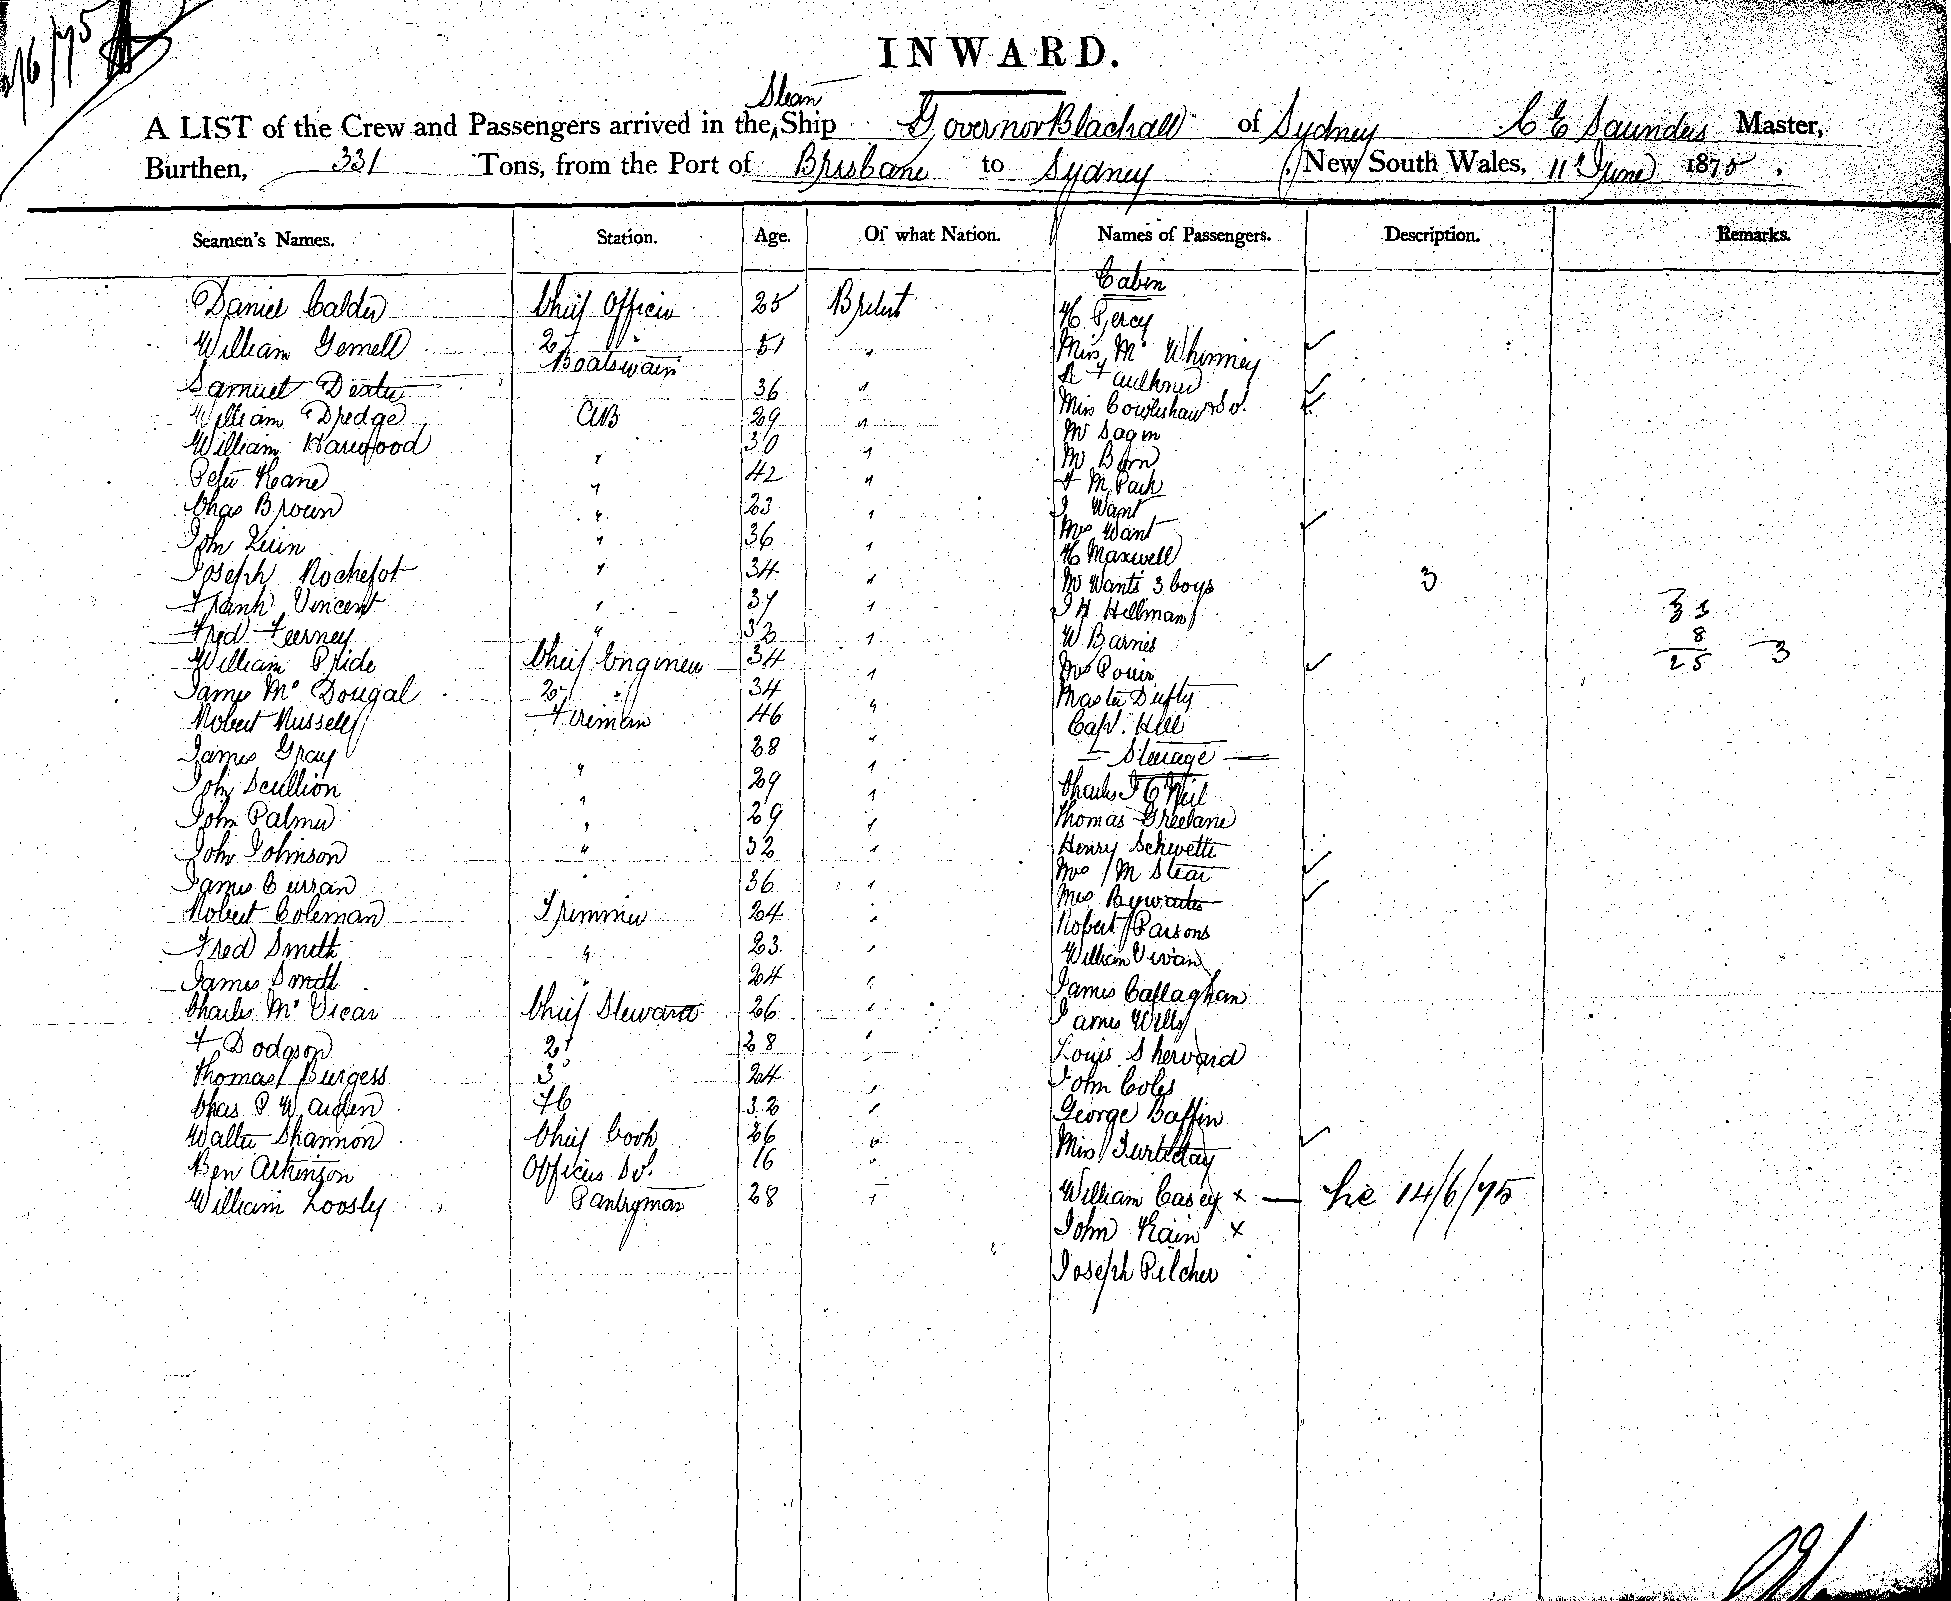 INWARD.
A LIST of the Crew and Passengers arrived in the Steam Ship Governor Blackall of Sydney C E Saunders Master,
Burthen, 331 Tons, from the Port of Brisbane to Sydney New South Wales, 11th June 1875.
Seamen's Names. Station. Age. Of what Nation. Names of Passengers. Description. Remarks.
Cabin
Daniel Calder Chief Officer 25 British H Percy
William Gemell 2d " 51 " Miss Mc Whinney ✓
Samuel Dexter Boatswain 36 " A Faulkner ✓
William Dredge AB 29 " Miss Cowlishaw & Svt. ✓
William Harwood " 30 " Mr Sagin
Peter Kane " 42 " Mr Born
Chas Brown " 23 " F M Park
John Quin " 36 " J Want
Mrs Want ✓
Joseph Rochefot " 34 " H Maxwell
Frank Vincent " 37 " Mr Wants 3 boys 3
Fred Feerney " 32 " J H Hellman 33
William Pride Chief Engineer 34 " W Barnes 8
James Mc Dougal 2d " 34 " Mrs Power ✓ 25 3
Robert Russell Fireman 46 " Master Dufty
James Gray " 28 " Capt. Hill
Steerage
John Scullion " 29 " Charles J O Neil
John Palmer " 29 " Thomas Greelane
John Johnson " 32 " Henry Schwette
James Curran " 36 " Mrs M Stear ✓
Robert Coleman Trimmer 24 " Mrs Bywater ✓
Fred Smith " 23 " Robert Parsons
James Smith " 24 " William Vivan
Charles Mc Vicar Chief Steward 26 " James Callaghan
F Dodgson 2d 28 " James Wills
Thomas Burgess 3 24 " Louis Shervard
Chas P Warden 32 " John Coles
Walter Shannon Chief Cook 26 " George Baffin
Ben Atkinson Officers Svt. 16 " Miss Turbetay ✓
William Loosly Pantryman 28 " William Casey x — he 14/6/75
John Kain x
Joseph Pilcher